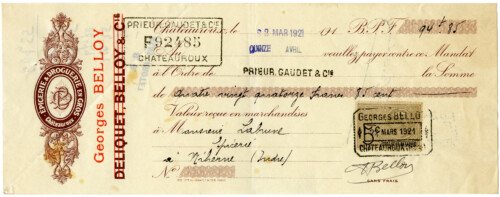 Châteauroux, le 28 MAR 1921 191 B.P.F. 94f 85
PRIEUR, GAUDET & Cie
F92485
CHATEAUROUX
QUINZE AVRIL veuillez payer contre ce Mandat
à l'Ordre de PRIEUR, GAUDET & Cie la Somme
de quatre vingt quatorze francs 85 cent
Valeur reçue en marchandises
à Monsieur Labrune
Epicerie
à Niherne (Indre)
No
GEORGES BELLOY
MARS 1921
CHATEAUROUX
GBelloy
SANS FRAIS
EPICERIE & DROGUERIE EN GROS
Georges BELLOY
DELIQUET-BELLOY &